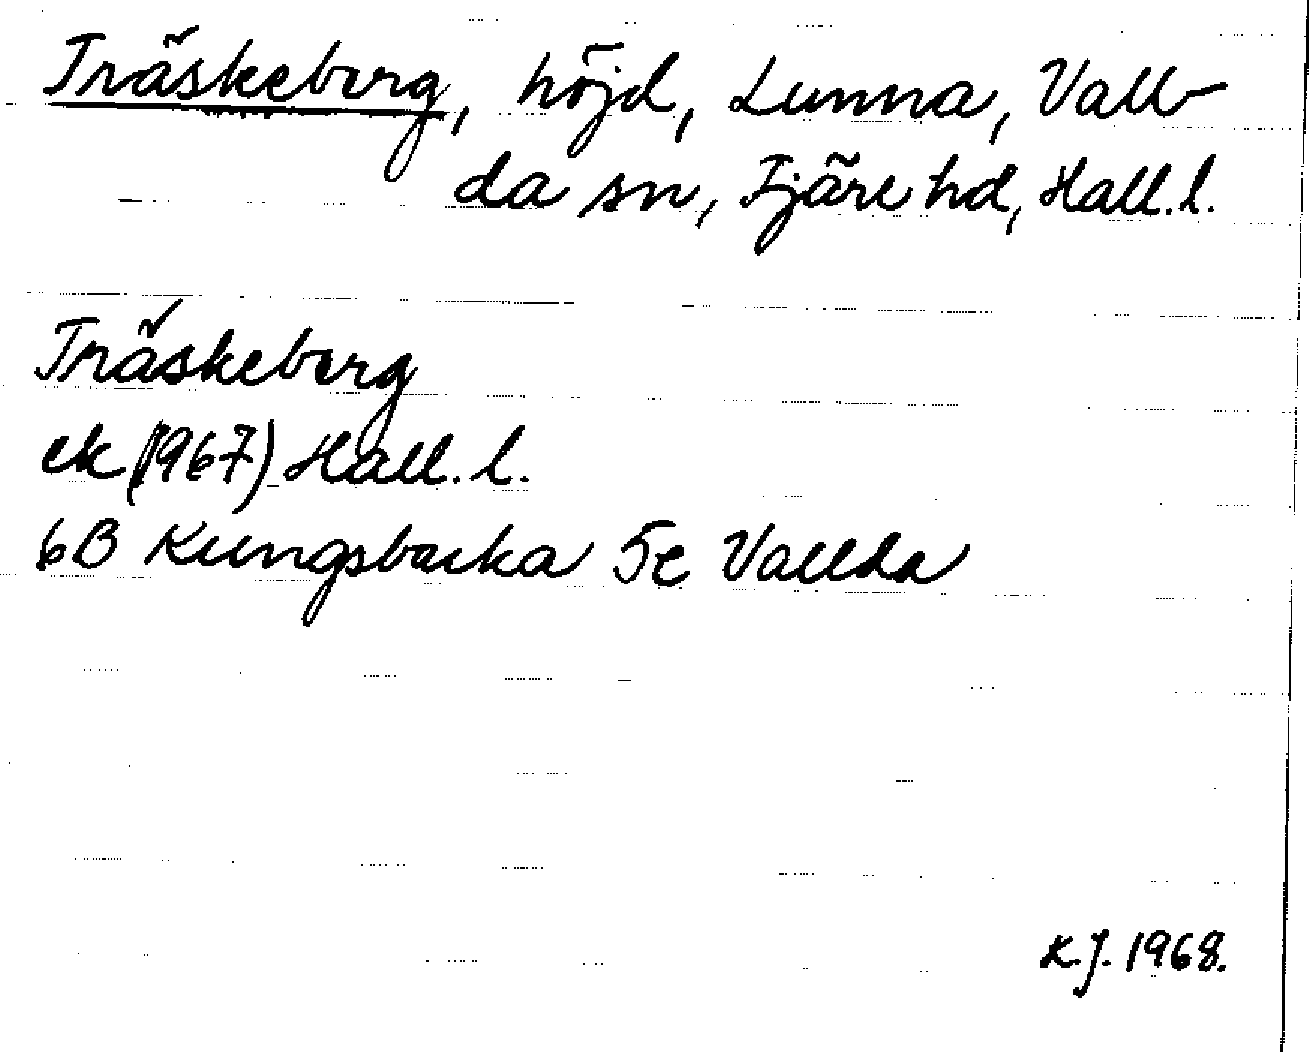 Träskeberg, höjd, Lunna, Vall-
da sn, Fjäre hd, Hall.l.
Träskeberg
ek (1967) Hall.l.
6B Kungsbacka 5c Vallda
K.J. 1968.